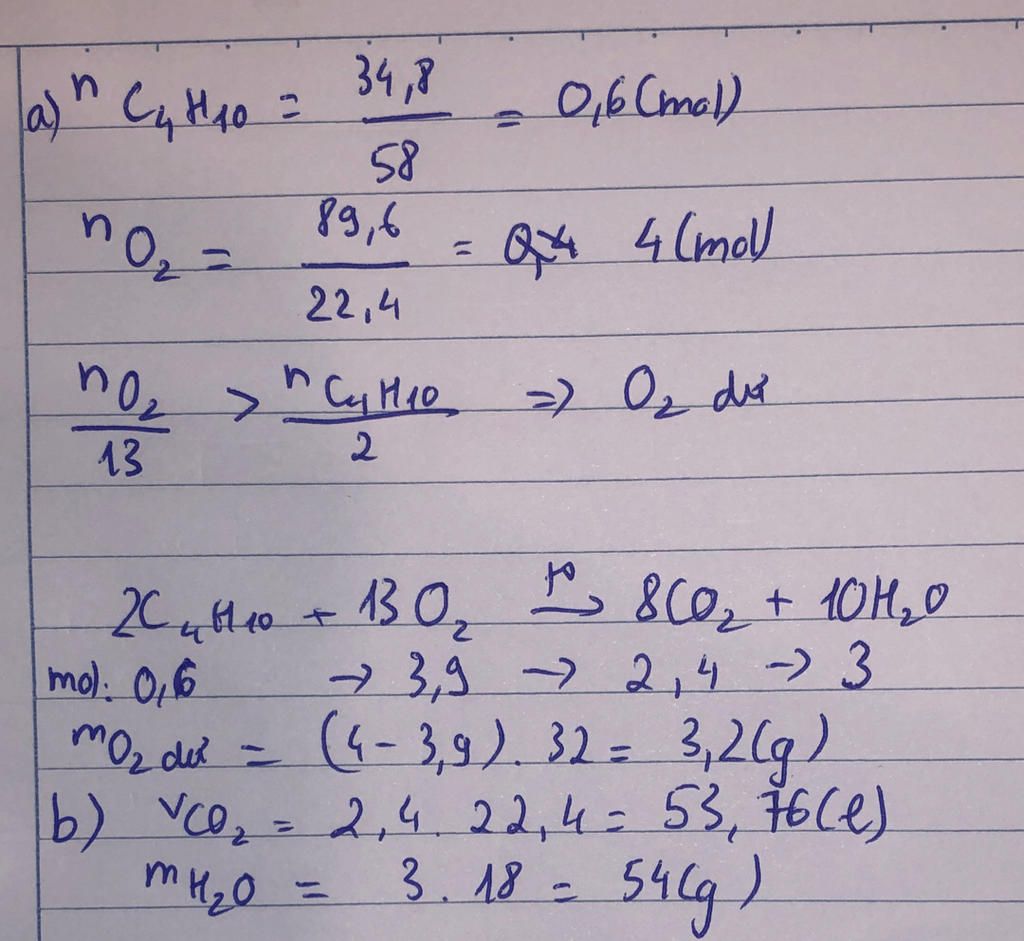 a) nC₄H₁₀ = 34,8/58 = 0,6 (mol)
nO₂ = 89,6/22,4 = 4 (mol)
nO₂/13 > nC₄H₁₀/2 => O₂ dư
2C₄H₁₀ + 13O₂ –t°→ 8CO₂ + 10H₂O
mol: 0,6 → 3,9 → 2,4 → 3
mO₂ dư = (4 - 3,9) . 32 = 3,2 (g)
b) VCO₂ = 2,4 . 22,4 = 53,76 (l)
mH₂O = 3 . 18 = 54 (g)